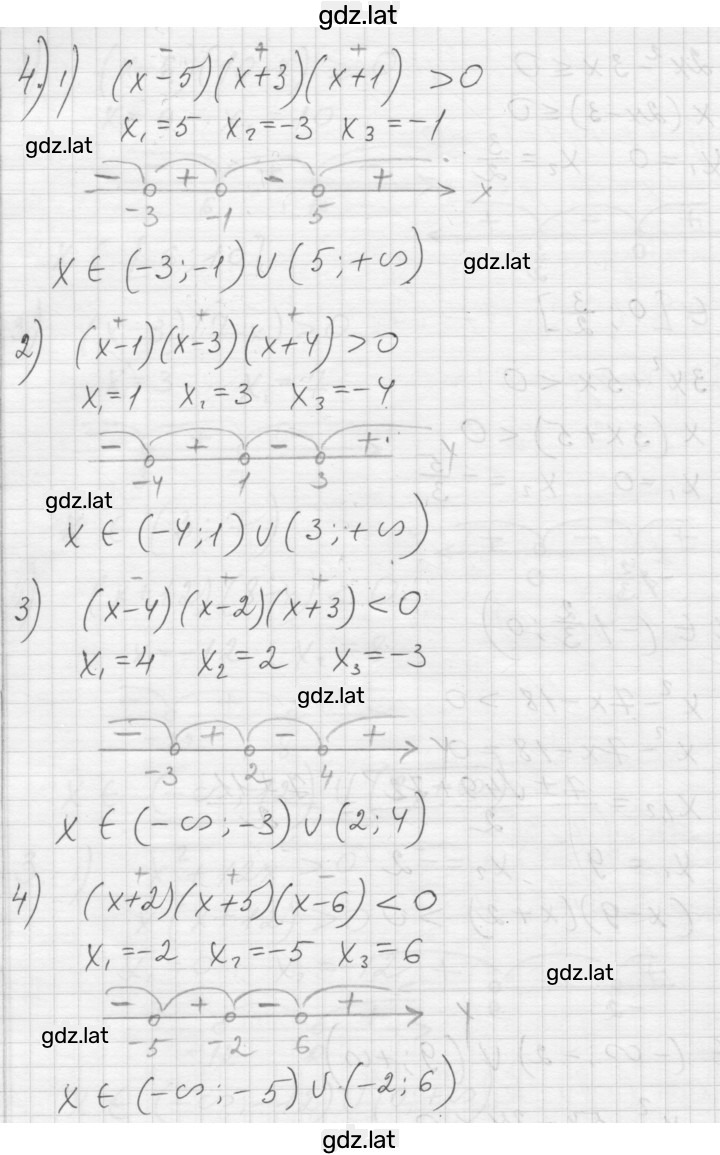 gdz.lat
4.) 1) (x-5)(x+3)(x+1) >0
x₁=5 x₂=-3 x₃=-1
gdz.lat
- + - + x
-3 -1 5
x ∈ (-3;-1) ∪ (5;+∞)
gdz.lat
2) (x-1)(x-3)(x+4) >0
x₁=1 x₂=3 x₃=-4
- + - + x
-4 1 3
gdz.lat
x ∈ (-4;1) ∪ (3;+∞)
3) (x-4)(x-2)(x+3) <0
x₁=4 x₂=2 x₃=-3
gdz.lat
- + - + x
-3 2 4
x ∈ (-∞;-3) ∪ (2;4)
4) (x+2)(x+5)(x-6) <0
x₁=-2 x₂=-5 x₃=6
gdz.lat
- + - + x
gdz.lat
-5 -2 6
x ∈ (-∞;-5) ∪ (-2;6)
gdz.lat